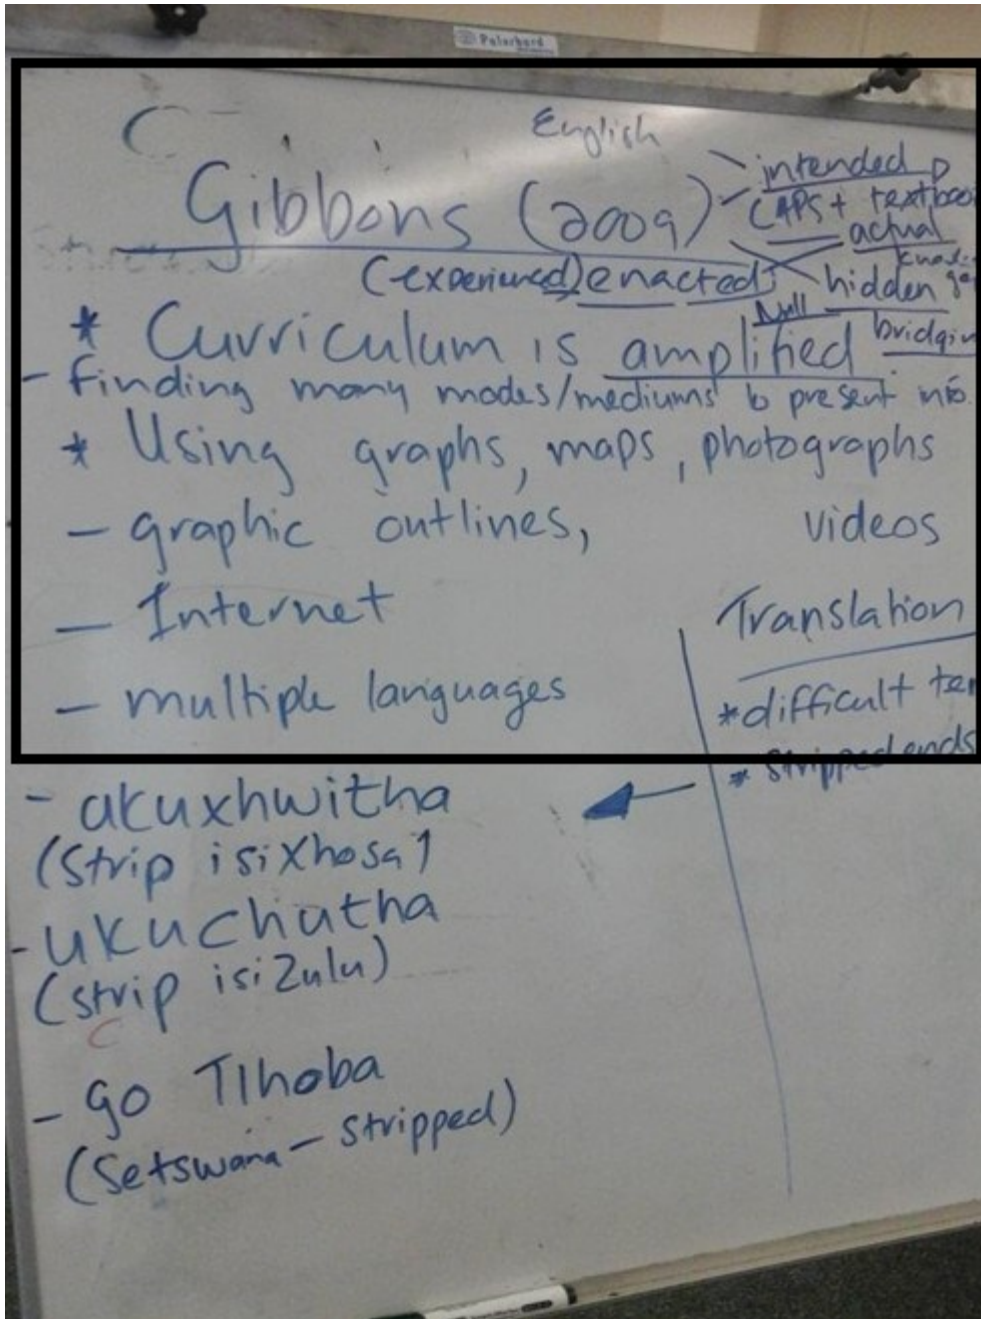 Polarbord
English
Gibbons (2009)
intended
CAPS +
actual
(experienced) enacted
hidden
Null
* Curriculum is amplified
- finding many modes/mediums to present info.
* Using graphs, maps, photographs
- graphic outlines, videos
- Internet
- multiple languages
Translation
* difficult
* stripped ends
- akuxhwitha
(Strip isiXhosa)
- ukuchutha
(strip isiZulu)
- go Tlhoba
(Setswana - stripped)